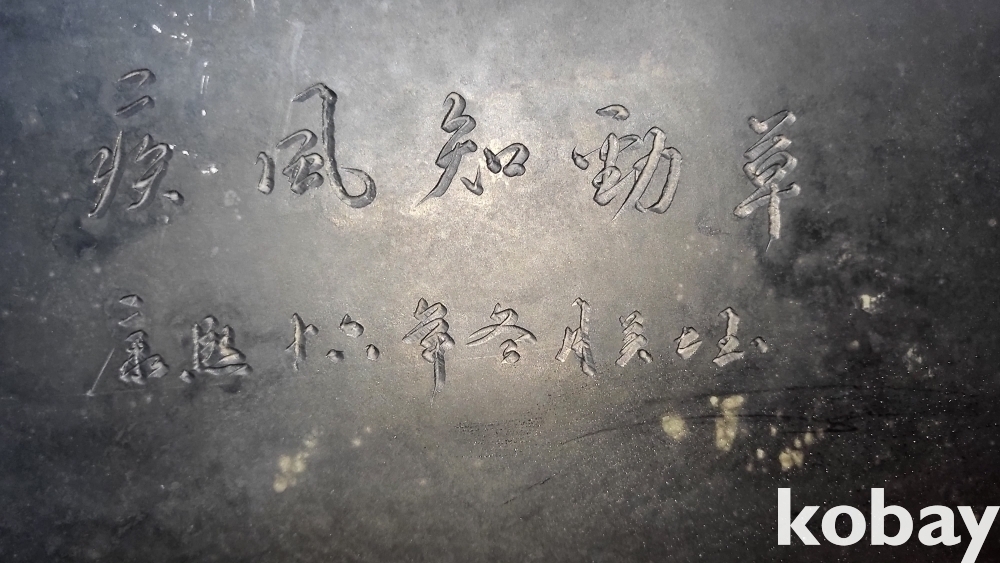 疾風知勁草
康熙十六年冬月吳
kobay